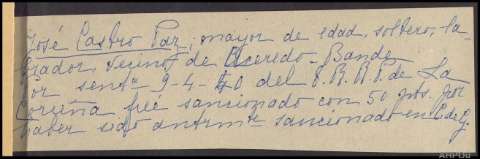 José Castro Paz, mayor de edad, soltero, la-
brador, vecino de Aceredo - Bande
Por sentª 9-4-40 del T.R.R.P. de La
Coruña fué sancionado con 50 pts. por
haber sido antermte sancionado en C. de G.
AHPOu